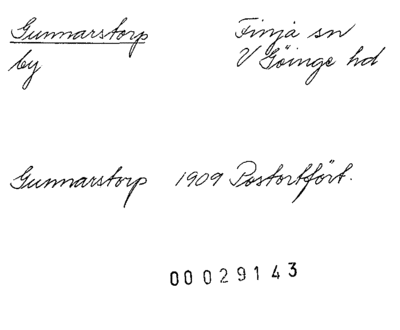 Gunnarstorp Finja sn
by V Göinge hd
Gunnarstorp 1909 Postortfört.
00029143